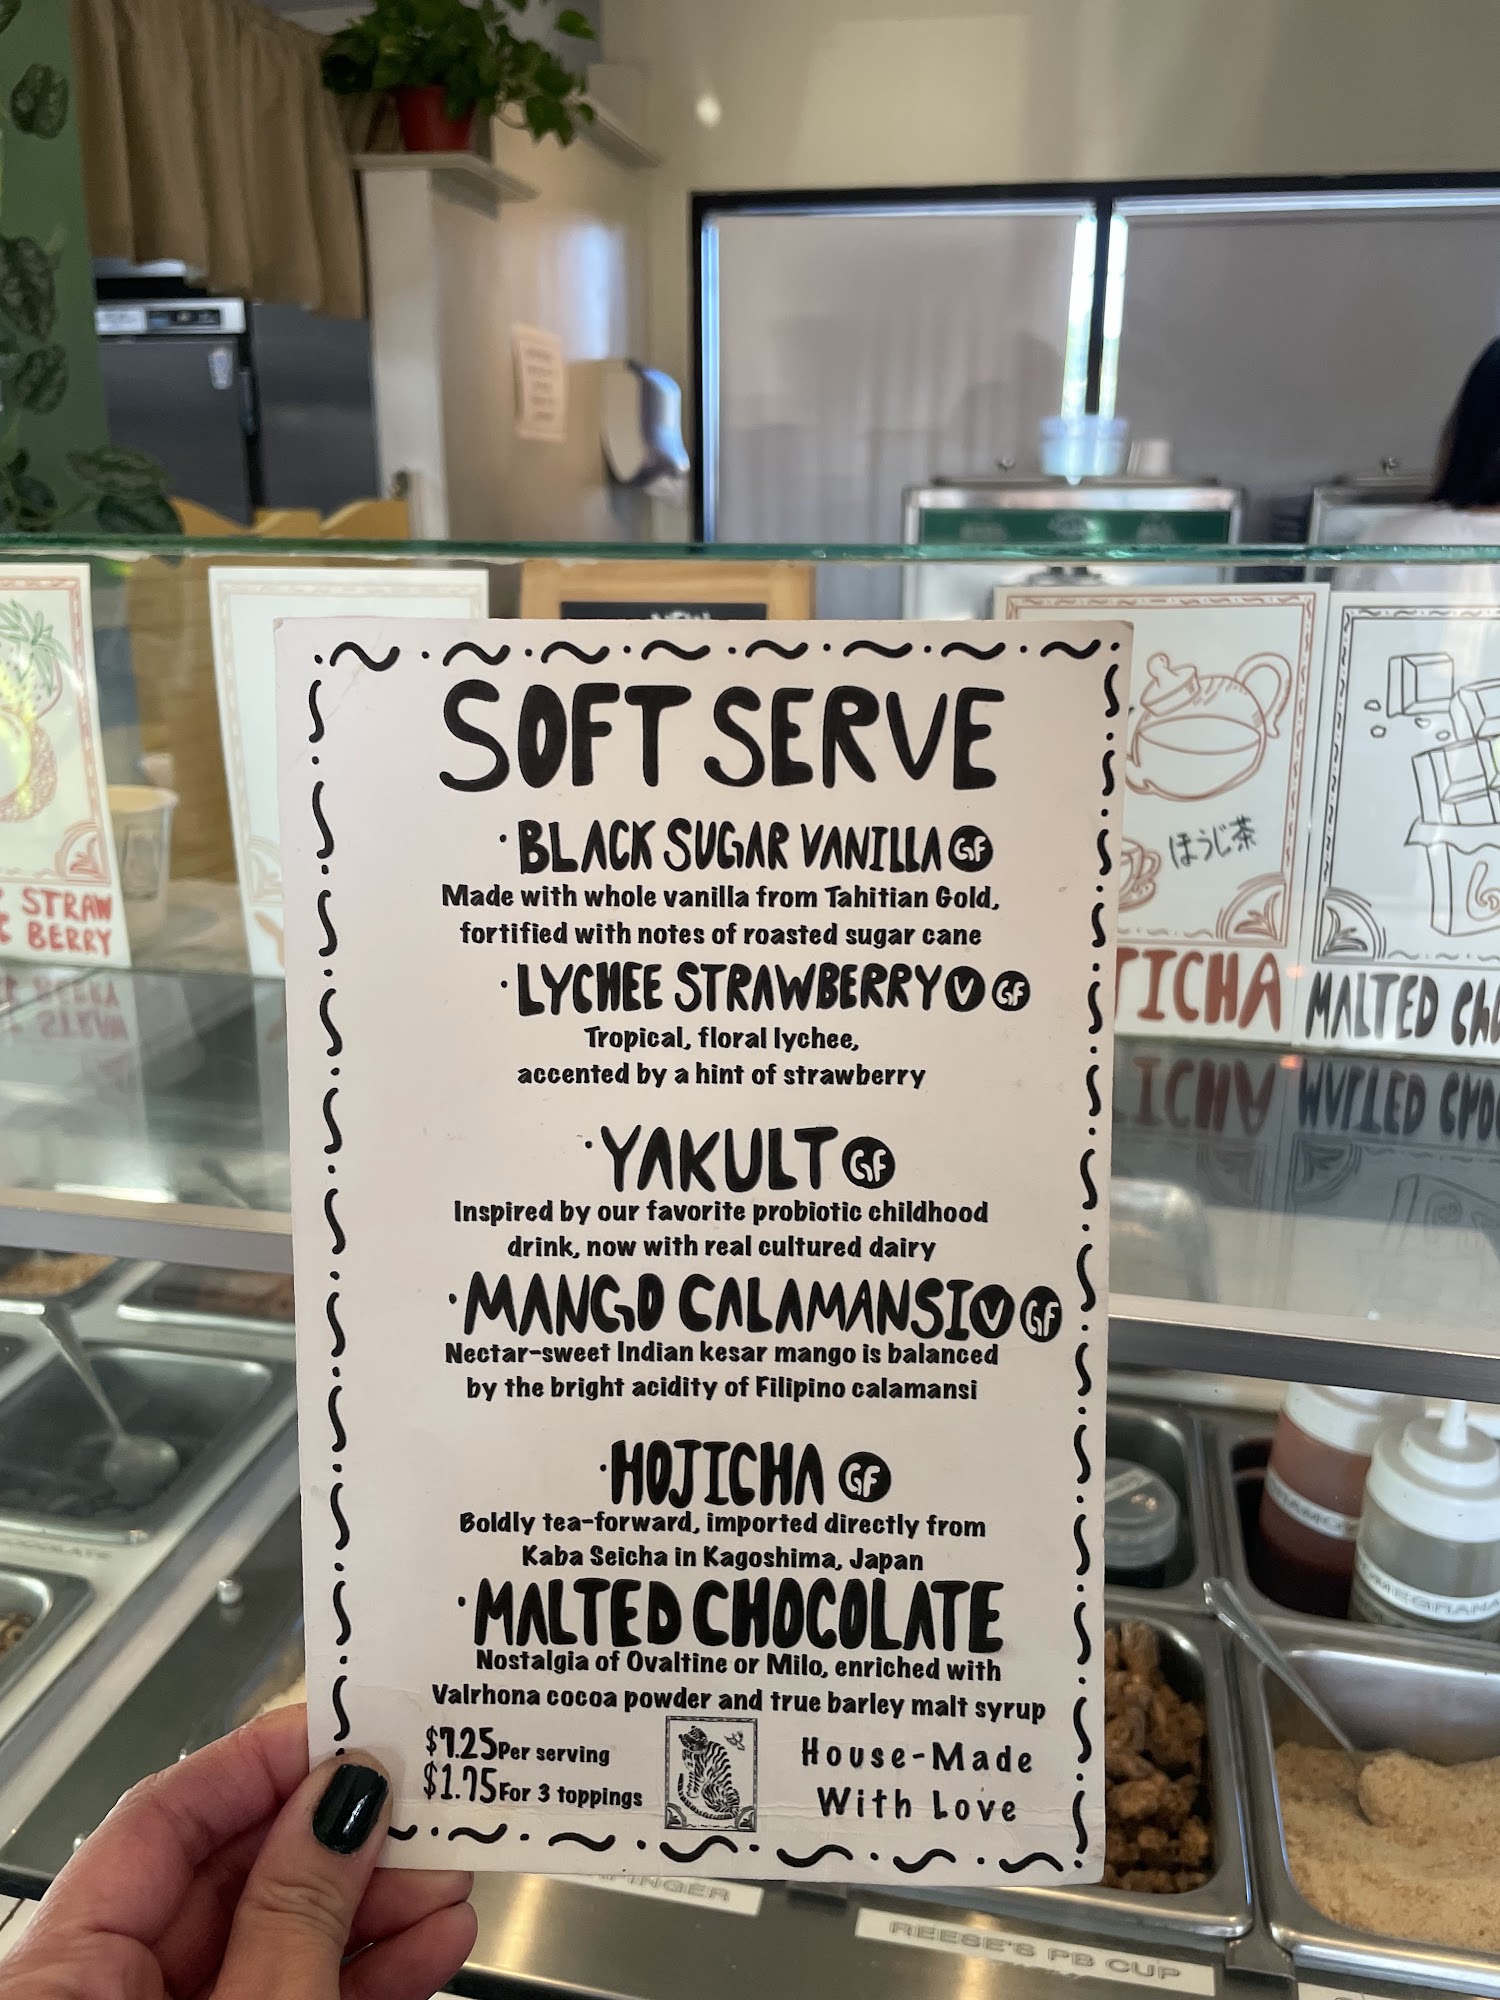 SOFT SERVE
· BLACK SUGAR VANILLA GF
Made with whole vanilla from Tahitian Gold,
fortified with notes of roasted sugar cane
· LYCHEE STRAWBERRY V GF
Tropical, floral lychee,
accented by a hint of strawberry
· YAKULT GF
Inspired by our favorite probiotic childhood
drink, now with real cultured dairy
· MANGO CALAMANSI V GF
Nectar-sweet Indian kesar mango is balanced
by the bright acidity of Filipino calamansi
· HOJICHA GF
Boldly tea-forward, imported directly from
Kaba Seicha in Kagoshima, Japan
· MALTED CHOCOLATE
Nostalgia of Ovaltine or Milo, enriched with
Valrhona cocoa powder and true barley malt syrup
$7.25 Per serving
$1.75 For 3 toppings
House-Made
With Love
STRAW
BERRY
ほうじ茶
TICHA
MALTED
REESE'S PB CUP